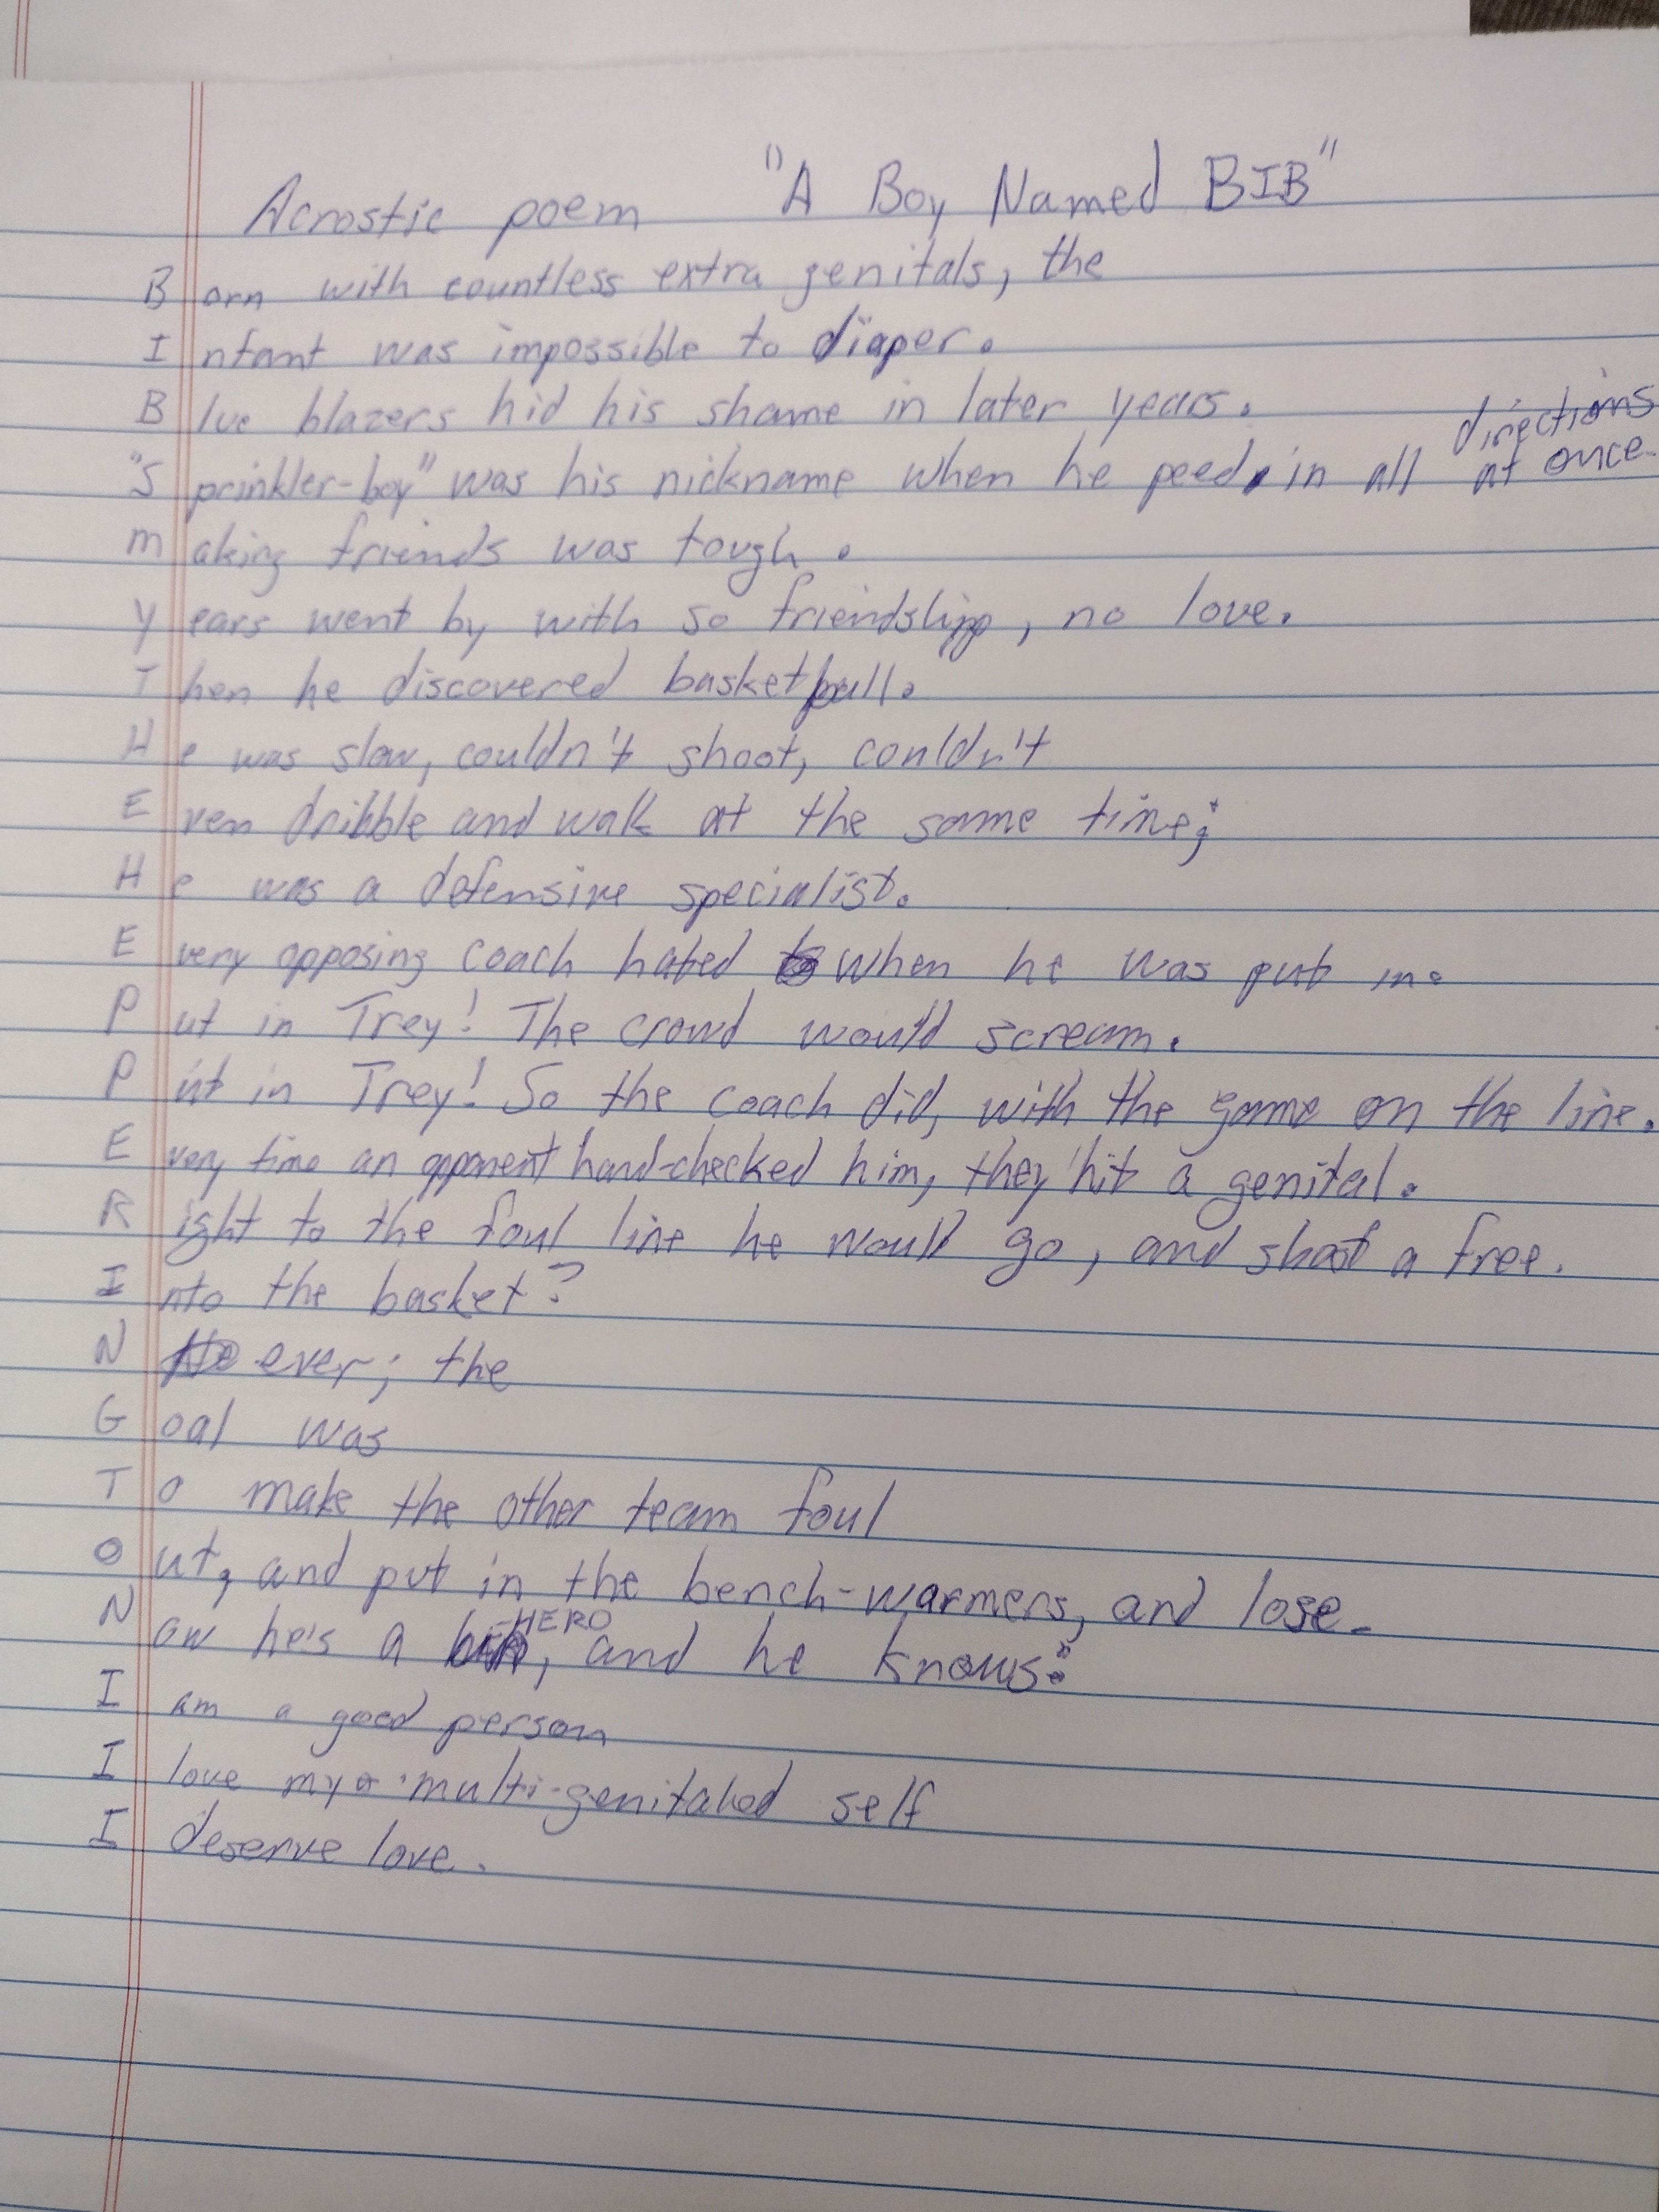 Acrostic poem "A Boy Named BIB"
Born with countless extra genitals, the
Infant was impossible to diaper.
Blue blazers hid his shame in later years.
"Sprinkler-boy" was his nickname when he peed in all directions at once.
Making friends was tough.
Years went by with so friendship, no love.
Then he discovered basketball.
He was slow, couldn't shoot, couldn't
Even dribble and walk at the same time;
He was a defensive specialist.
Every opposing coach hated when he was put in.
Put in Trey! The crowd would scream.
Put in Trey! So the coach did, with the game on the line.
Every time an opponent hand-checked him, they hit a genital.
Right to the foul line he would go, and shoot a free.
Into the basket?
Never; the
Goal was
To make the other team foul
Out, and put in the bench-warmers, and lose.
Now he's a HERO, and he knows:
I am a good person
I love my multi-genitaled self
I deserve love.